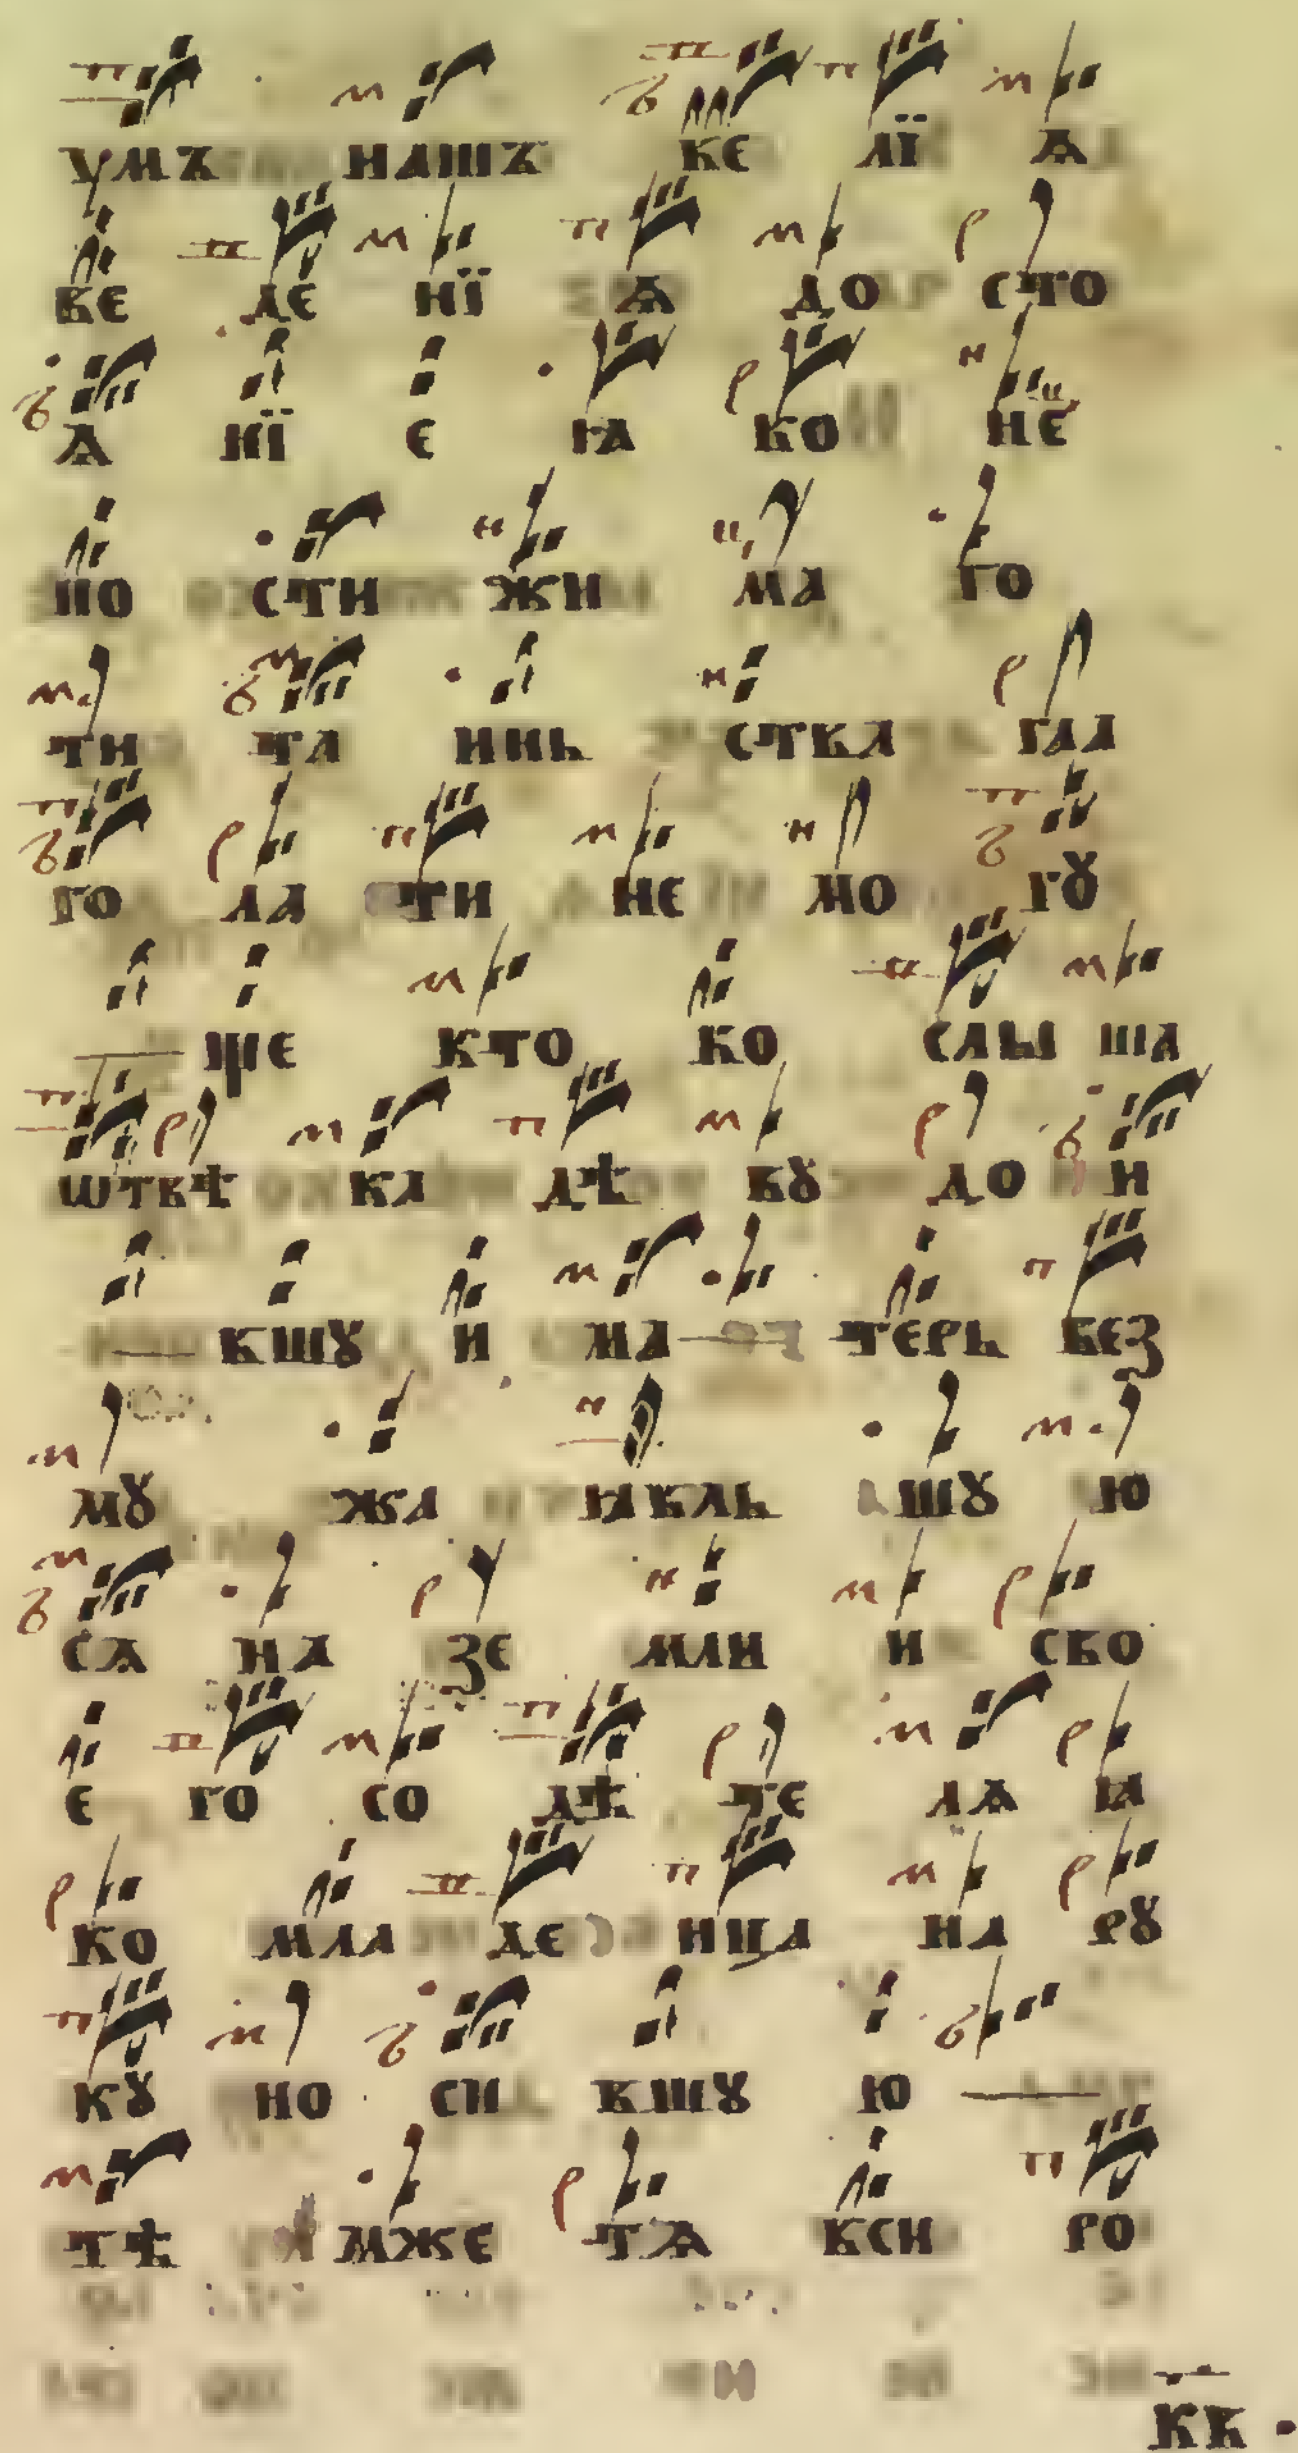 умъ нашъ ве лї ѧ
ве де нї ѧ до сто
ѧ нї е ꙗ ко не
по сти жи ма го
ти та инь ства гла
го ла ти не мо гꙋ
ще кто ко слы ша
ѿвѣ ка дѣ вꙋ до и
вшꙋ и ма терь без
мꙋ жа ꙗвль шꙋ ю
сѧ на зе мли и сво
е го со дѣ те лѧ ꙗ
ко мла де нца на рꙋ
кꙋ но си вшꙋ ю
тѣ мже тѧ вси ро
кв